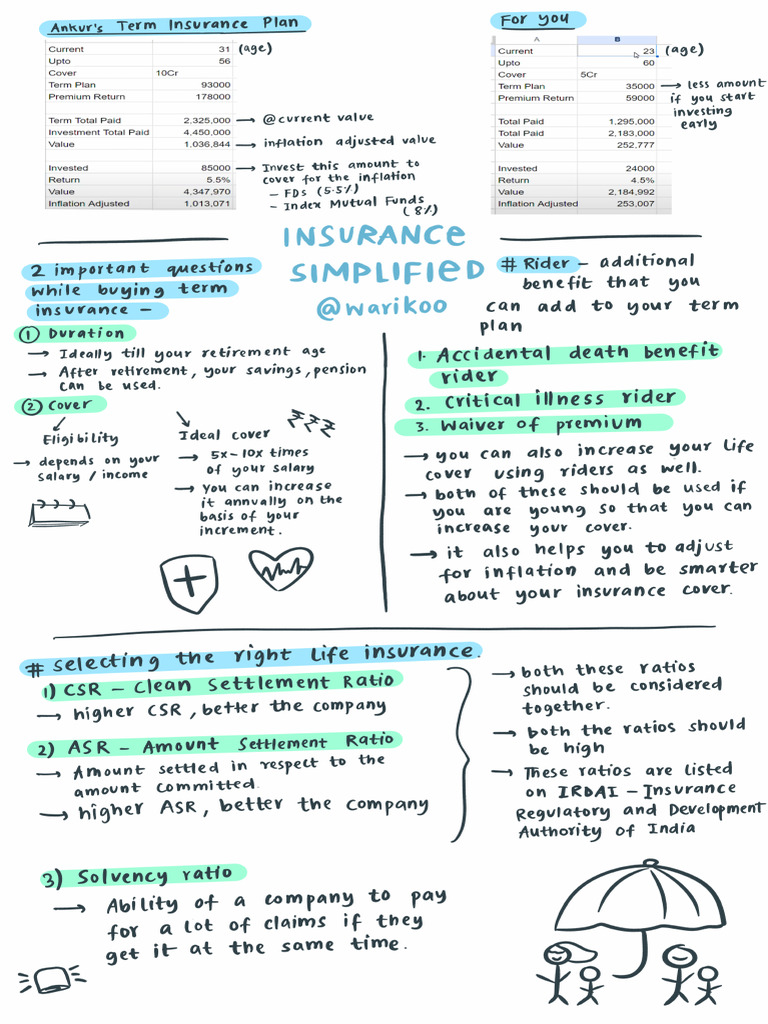 Ankur's Term Insurance Plan
Current 31 (age)
Upto 56
Cover 10Cr
Term Plan 93000
Premium Return 178000
Term Total Paid 2,325,000 → @current value
Investment Total Paid 4,450,000
Value 1,036,844 → inflation adjusted value
Invested 85000 → Invest this amount to
cover for the inflation
Return 5.5% - FDs (5.5%)
Value 4,347,970 - Index Mutual Funds
(8%)
Inflation Adjusted 1,013,071
For you
A B
Current 23 (age)
Upto 60
Cover 5Cr
Term Plan 35000 → less amount
if you start
investing
early
Premium Return 59000
Total Paid 1,295,000
Total Paid 2,183,000
Value 252,777
Invested 24000
Return 4.5%
Value 2,184,992
Inflation Adjusted 253,007
INSURANCE
SIMPLIFIED
@warikoo
2 important questions
while buying term
insurance -
① Duration
→ Ideally till your retirement age
→ After retirement, your savings, pension
can be used.
② Cover
Eligibility
→ depends on your
salary / income
Ideal cover
₹₹₹
→ 5x-10x times
of your salary
→ You can increase
it annually on the
basis of your
increment.
# Rider - additional
benefit that you
can add to your term
plan
1. Accidental death benefit
rider
2. Critical illness rider
3. Waiver of premium
→ you can also increase your life
cover using riders as well.
→ both of these should be used if
you are young so that you can
increase your cover.
→ it also helps you to adjust
for inflation and be smarter
about your insurance cover.
# Selecting the right life insurance.
1) CSR - Clean Settlement Ratio
→ higher CSR, better the company
2) ASR - Amount Settlement Ratio
→ Amount settled in respect to the
amount committed.
→ higher ASR, better the company
→ both these ratios
should be considered
together.
→ both the ratios should
be high
→ These ratios are listed
on IRDAI - Insurance
Regulatory and Development
Authority of India
3) Solvency ratio
→ Ability of a company to pay
for a lot of claims if they
get it at the same time.